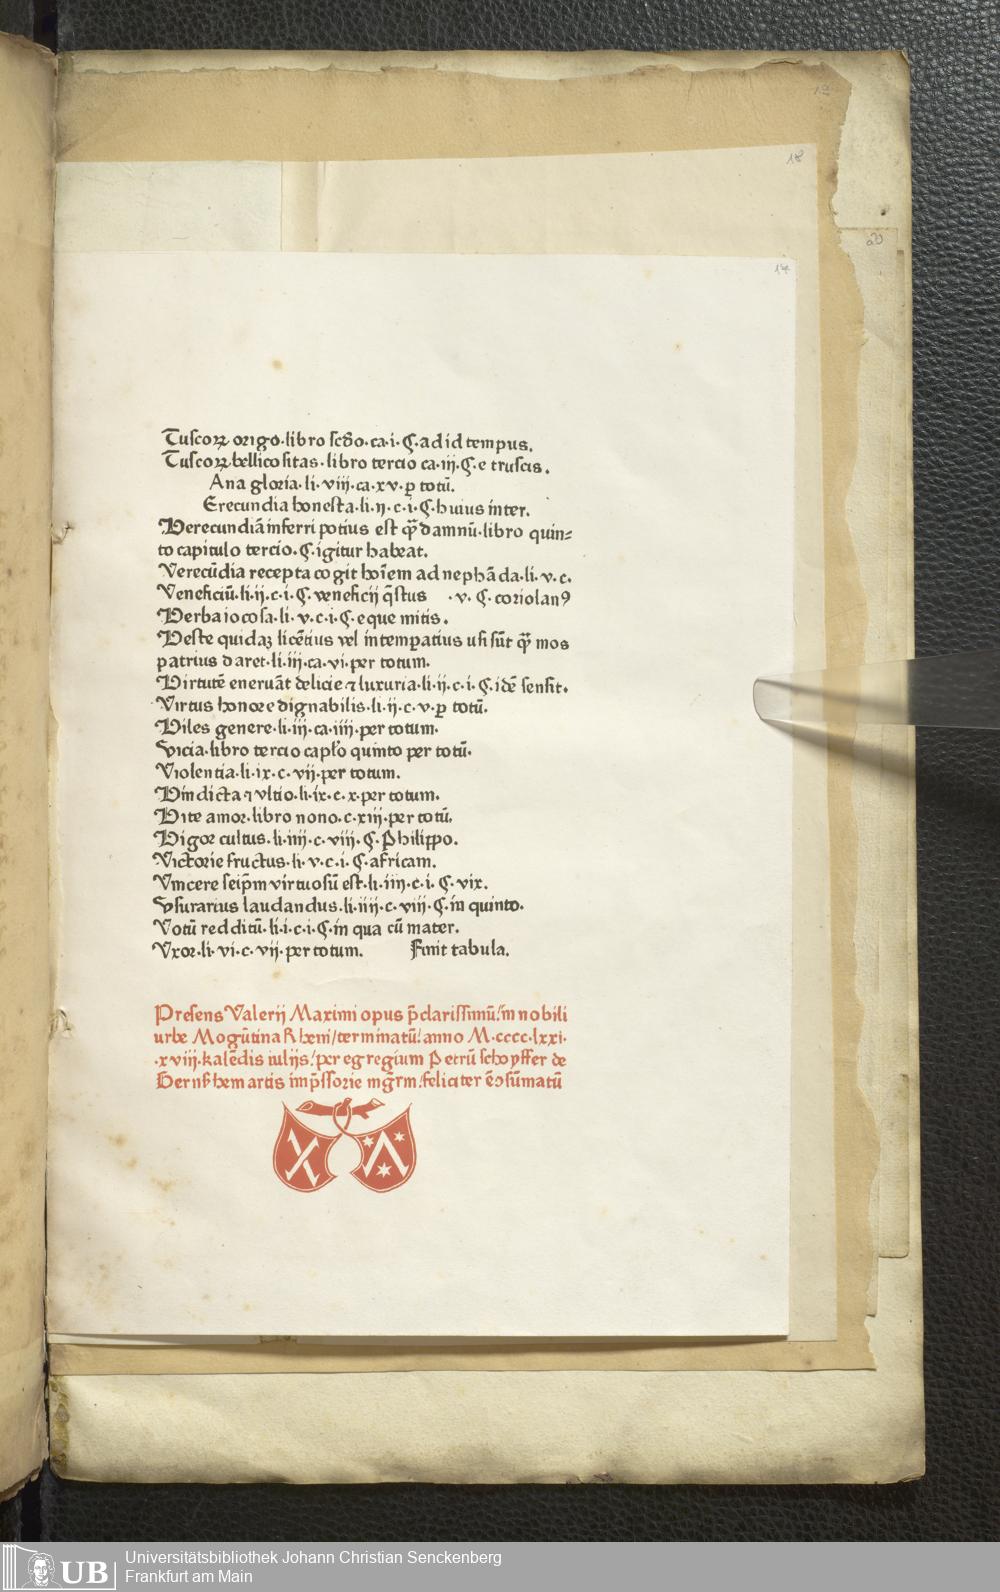 19
18
20
17
Tuscoꝝ origo·libro scd̄o·ca·i·ꝕ·ad id tempus.
Tuscoꝝ bellicositas·libro tercio ca·iij·ꝕ·e truscis.
Ana gloria·li·viij·ca·xv·ꝑ totū.
Erecundia honesta·li·ij·c·i·ꝕ·huius inter.
Verecundiā inferri potius est qȝ̄ damnū·libro quin⸗
to capitulo tercio·ꝕ·igitur habeat.
Verecūdia recepta cogit hoīem ad nephāda·li·v·c.
Veneficiū·li·ij·c·i·ꝕ·veneficij q̄stus ·v·ꝕ·coriolanꝰ
Verba iocosa·li·v·c·i·ꝕ·eque mitis.
Veste quidaȝ licētius vel intemꝑatius usi sūt qȝ̄ mos
patrius daret·li·iij·ca·vi·per totum.
Virtutē eneruāt delicie ⁊ luxuria·li·ij·c·i·ꝕ·idē sensit.
Virtus honore dignabilis·li·ij·c·v·ꝑ totū.
Viles genere·li·iij·ca·iiij·per totum.
Vicia·libro tercio capl̄o quinto per totū.
Violentia·li·ix·c·vij·per totum.
Vindicta ⁊ vltio·li·ix·c·x·per totum.
Vite amor·libro nono·c·xiij·per totū.
Vigor cultus·li·iiij·c·viij·ꝕ·Philippo.
Victorie fructus·li·v·c·i·ꝕ·africam.
Vincere seip̄m virtuosū est·li·iiij·c·i·ꝕ·vix.
Vsurarius laudandus·li·iiij·c·viij·ꝕ·in quinto.
Votū redditū·li·i·c·i·ꝕ·in qua cū mater.
Vxor·li·vi·c·vij·per totum. Finit tabula.
Presens Valerij Maximi opus p̄clarissimū/in nobili
urbe Mogūtina Rheni/terminatū/anno M·cccc·lxxi·
·xviij·kalēdis iulijs/per egregium Petrū schoyffer de
Gernsshem artis imp̄ssorie mgr̄m/feliciter ē ↄsūmatū
UB
Universitätsbibliothek Johann Christian Senckenberg
Frankfurt am Main